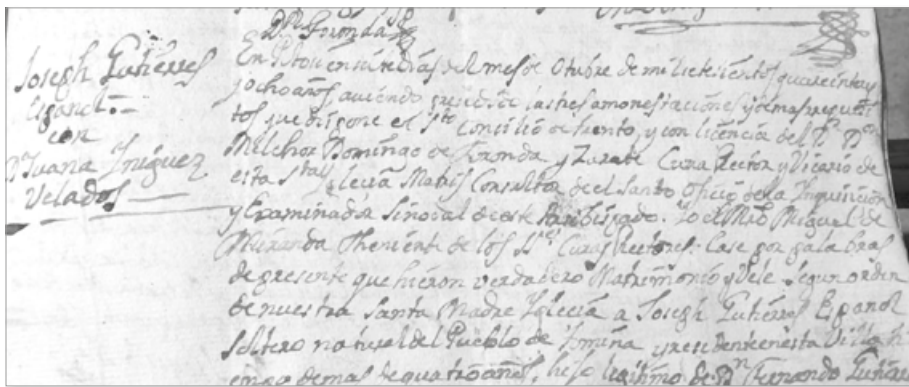 Joseph Gutierres
Español
con
Dª Juana Yniguez
Velados
En Potosi en siete dias del mes de Otubre de mil setesientos quarenta y
y ocho años, auiendo presedido las tres amonestaciones y demas requesi
tos que dispone el Sto Consilio de trento, y con licencia del Dr Dn
Melchor Domingo de Foronda y Zarate Cura Rector y Vicario de
esta Sta Iglesia Matris Consultor de el Santo Oficio de la Inquisicion
y Examinador Sinodal de este Arsobispado. Yo el Mro Miguel de
Miranda Theniente de los Sres Curas Rectores: Case por palabras
de presente que hisieron verdadero Matrimonio y Vele segun orden
de nuestra Santa Madre Yglesia a Joseph Gutierres Español
soltero natural del Pueblo de Pomina y residente en esta Villa
de mas de quatro años, hijo lexitimo de Dn Fernando